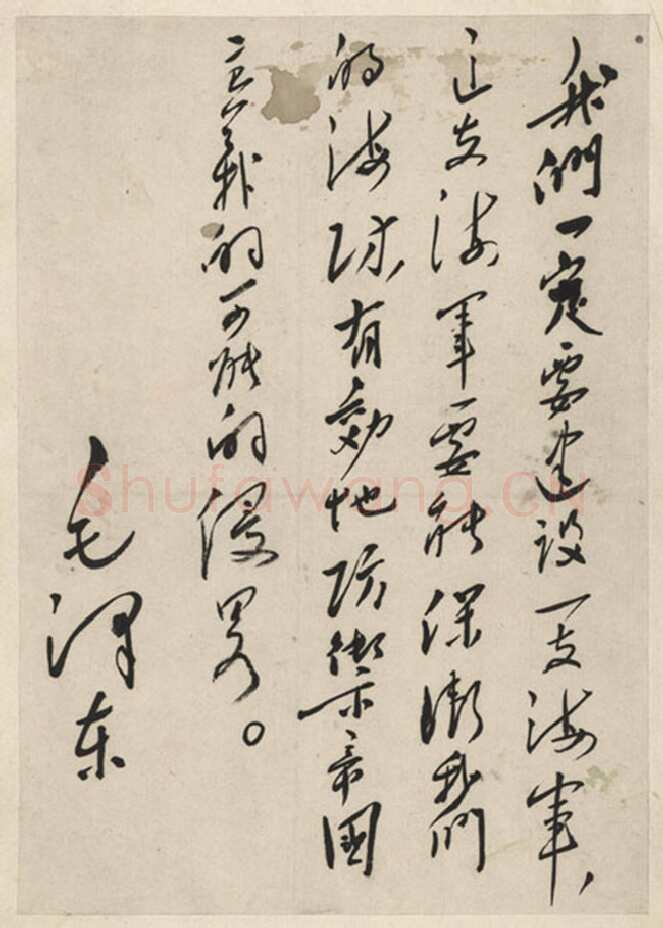 我們一定要建设一支海军，
这支海军要能保衛我們
的海防，有効地防御帝国
主義的可能的侵略。
毛泽东
Shufawang.CN